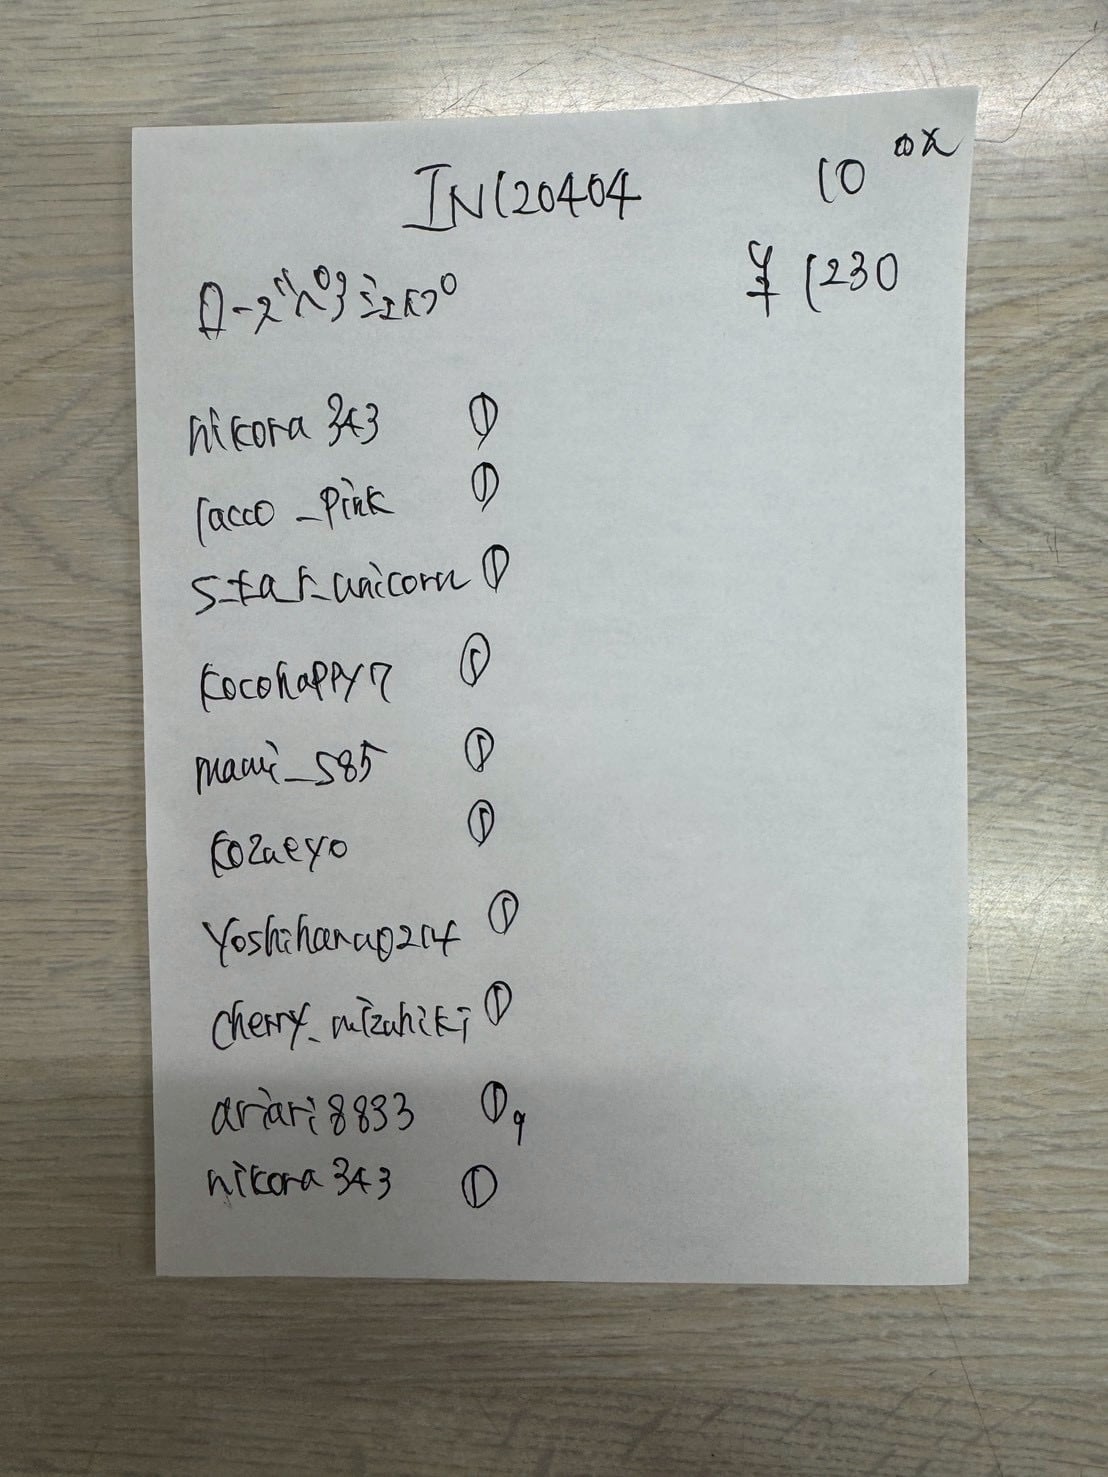 IN120404
10 ロス
¥1230
ローズペタミエスフ゜
nikora 343 ①
racco_pink ①
star_unicorn ①
kocohappy7 ①
mami_585 ①
kozueyo ①
yoshihana0214 ①
cherry_mizuhiki ①
ariari8833 ① 9
nikora 343 ①